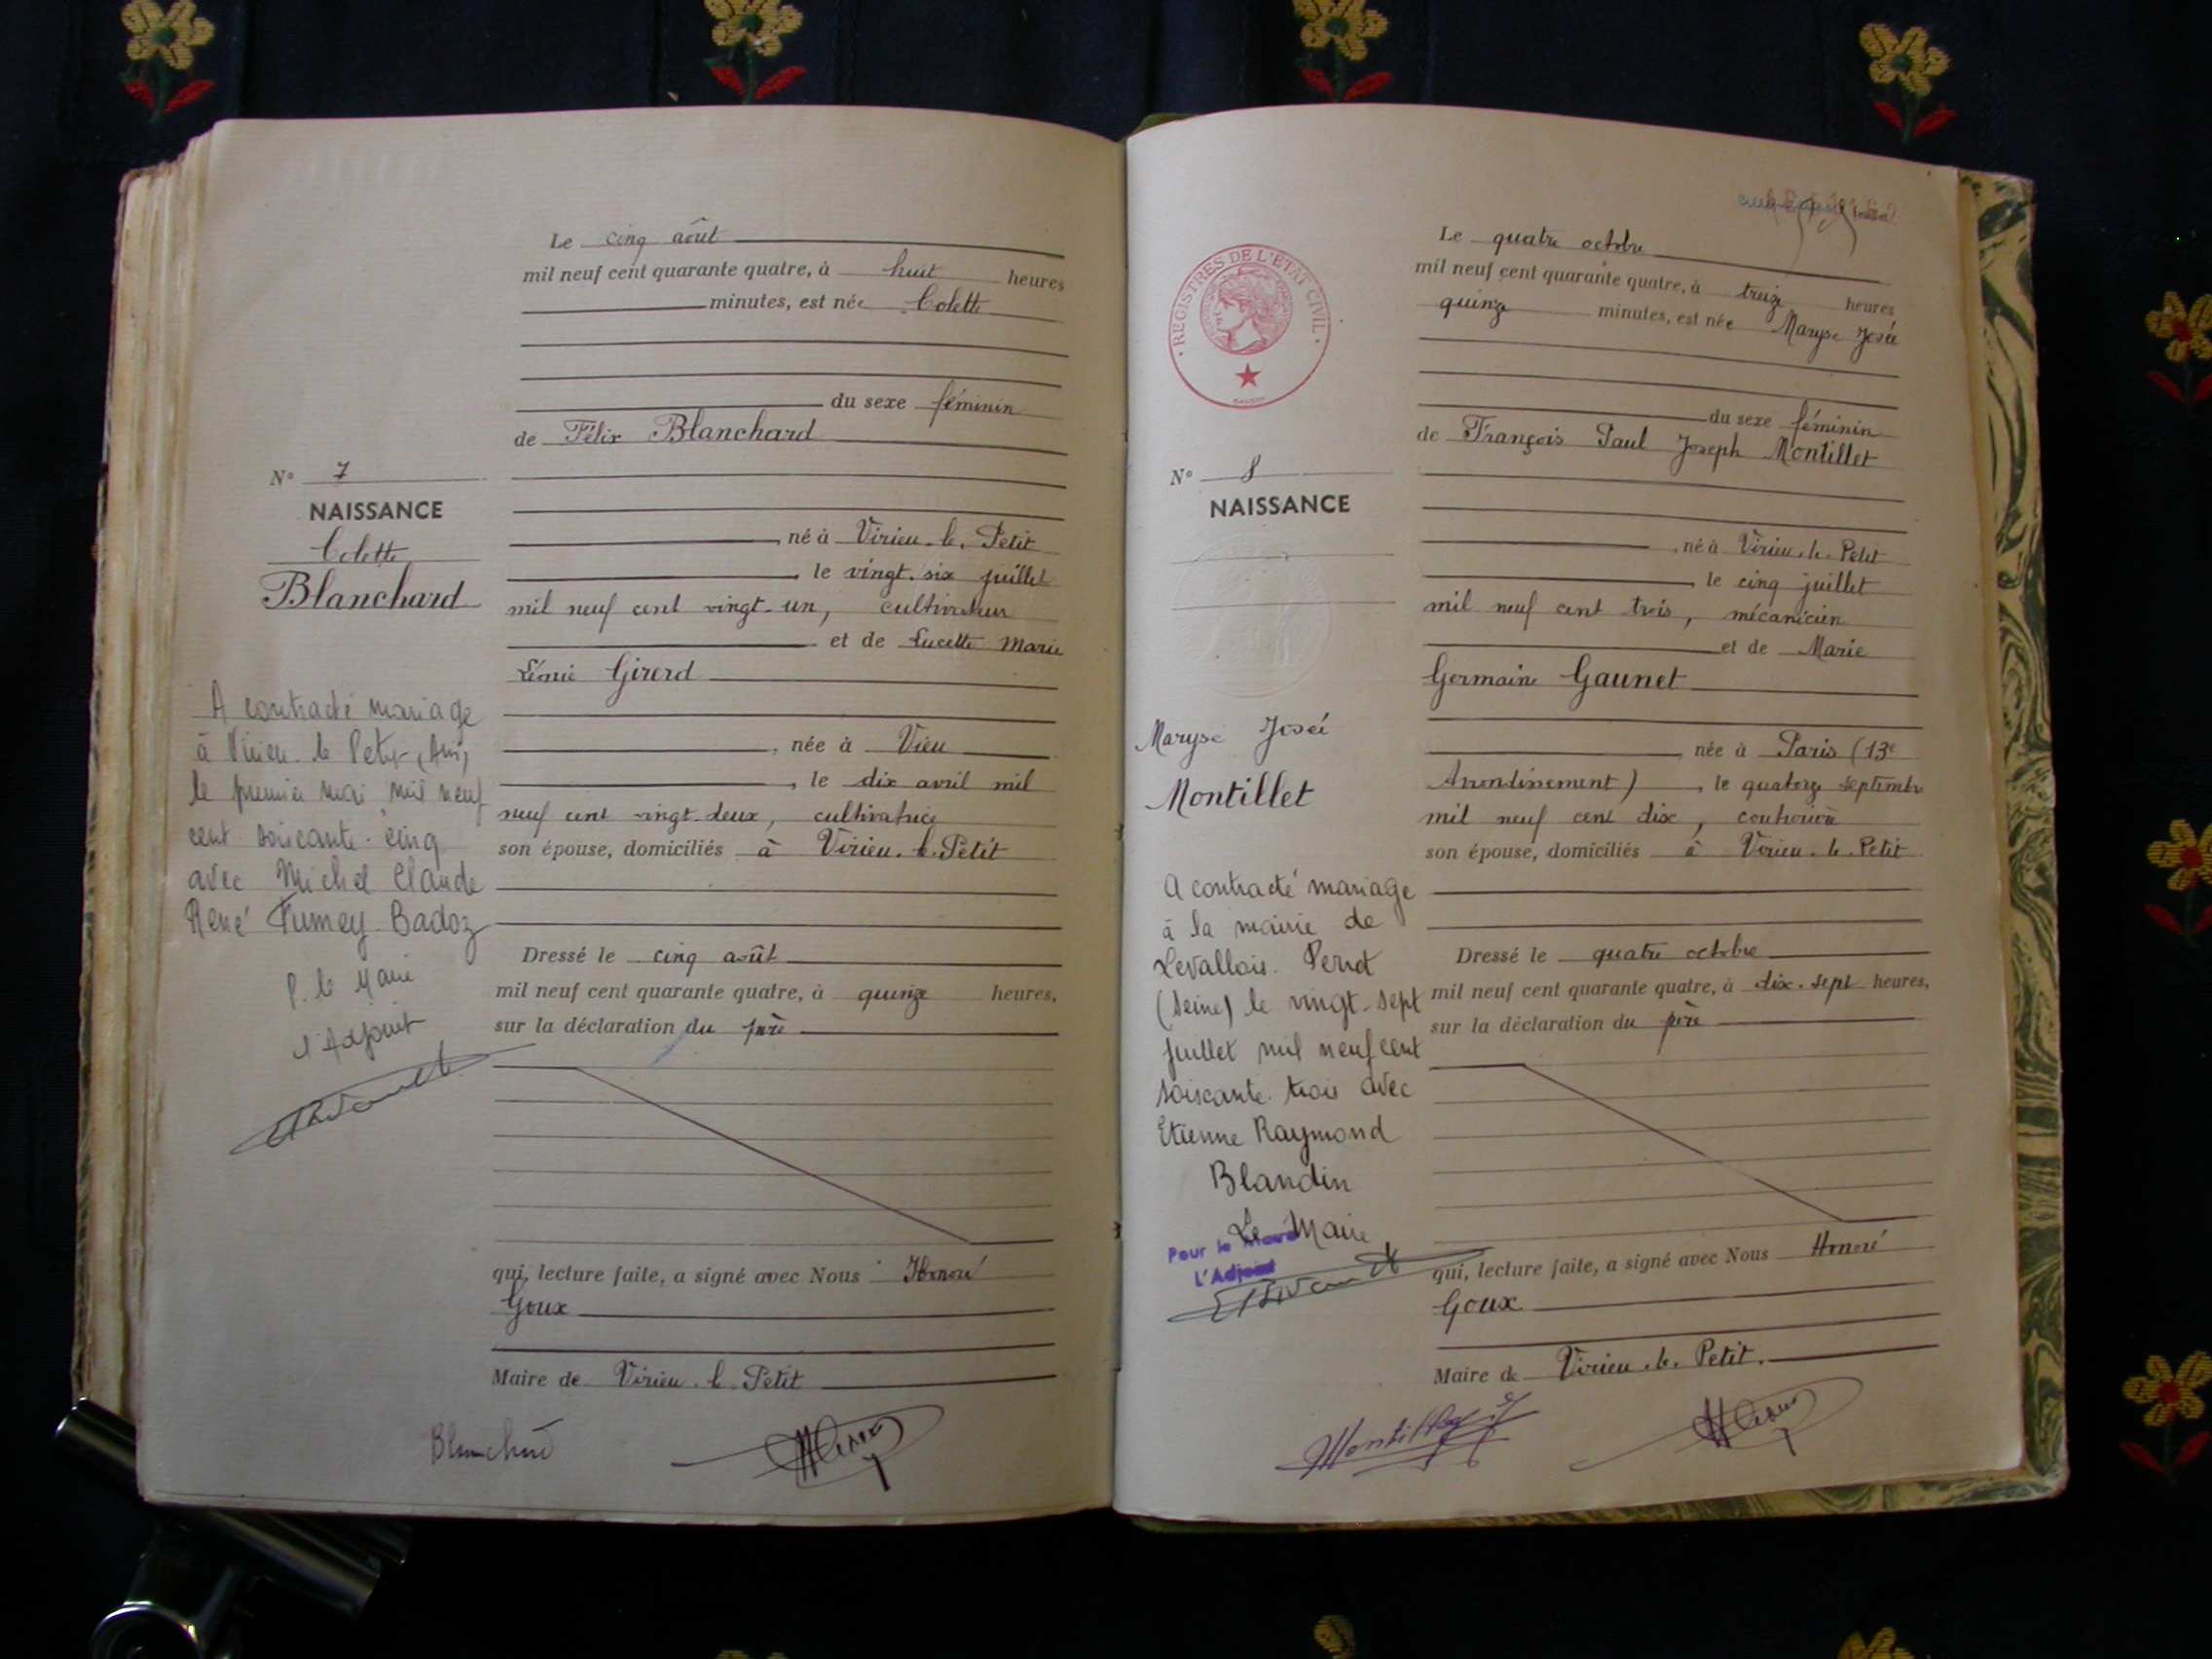 Le cinq août
mil neuf cent quarante quatre, à huit heures
minutes, est née Colette
du sexe féminin
de Félix Blanchard
né à Virieu-le-Petit
le vingt-six juillet
mil neuf cent vingt-un, cultivateur
et de Lucette Marie
Léonie Girerd
, née à Vieu
, le dix avril mil
neuf cent vingt-deux, cultivatrice
son épouse, domiciliés à Virieu-le-Petit
Dressé le cinq août
mil neuf cent quarante quatre, à quinze heures,
sur la déclaration du père
qui, lecture faite, a signé avec Nous Honoré
Goux
Maire de Virieu-le-Petit
Blanchard
N° 7
NAISSANCE
Colette
Blanchard
A contracté mariage
à Virieu-le-Petit (Ain)
le premier mai mil neuf
cent soixante-cinq
avec Michel Claude
René Fumey-Badoz
P. le Maire
l'Adjoint
Le quatre octobre
mil neuf cent quarante quatre, à treize heures
quinze minutes, est née Maryse Josée
du sexe féminin
de François Paul Joseph Montillet
, né à Virieu-le-Petit
, le cinq juillet
mil neuf cent trois, mécanicien
et de Marie
Germaine Gaunet
, née à Paris (13e
Arrondissement) , le quatorze septembre
mil neuf cent dix, couturière
son épouse, domiciliés à Virieu-le-Petit
Dressé le quatre octobre
mil neuf cent quarante quatre, à dix-sept heures,
sur la déclaration du père
qui, lecture faite, a signé avec Nous Honoré
Goux
Maire de Virieu-le-Petit.
Montillet
REGISTRES DE L'ETAT CIVIL
N° 8
NAISSANCE
Maryse Josée
Montillet
A contracté mariage
à la mairie de
Levallois-Perret
(Seine) le vingt-sept
juillet mil neuf cent
soixante-trois avec
Etienne Raymond
Blandin
Le Maire
Pour le Maire
L'Adjoint